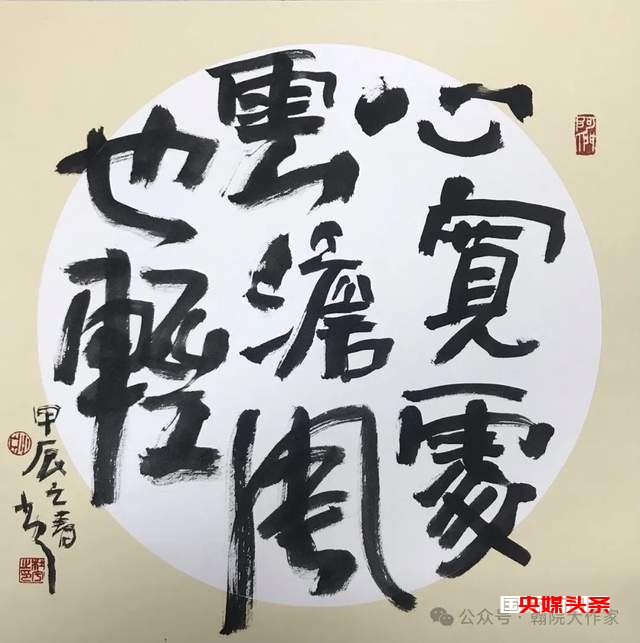 心寬處
雲澹風
也輕
甲辰之春
国央媒头条
公众号·翰院大作家